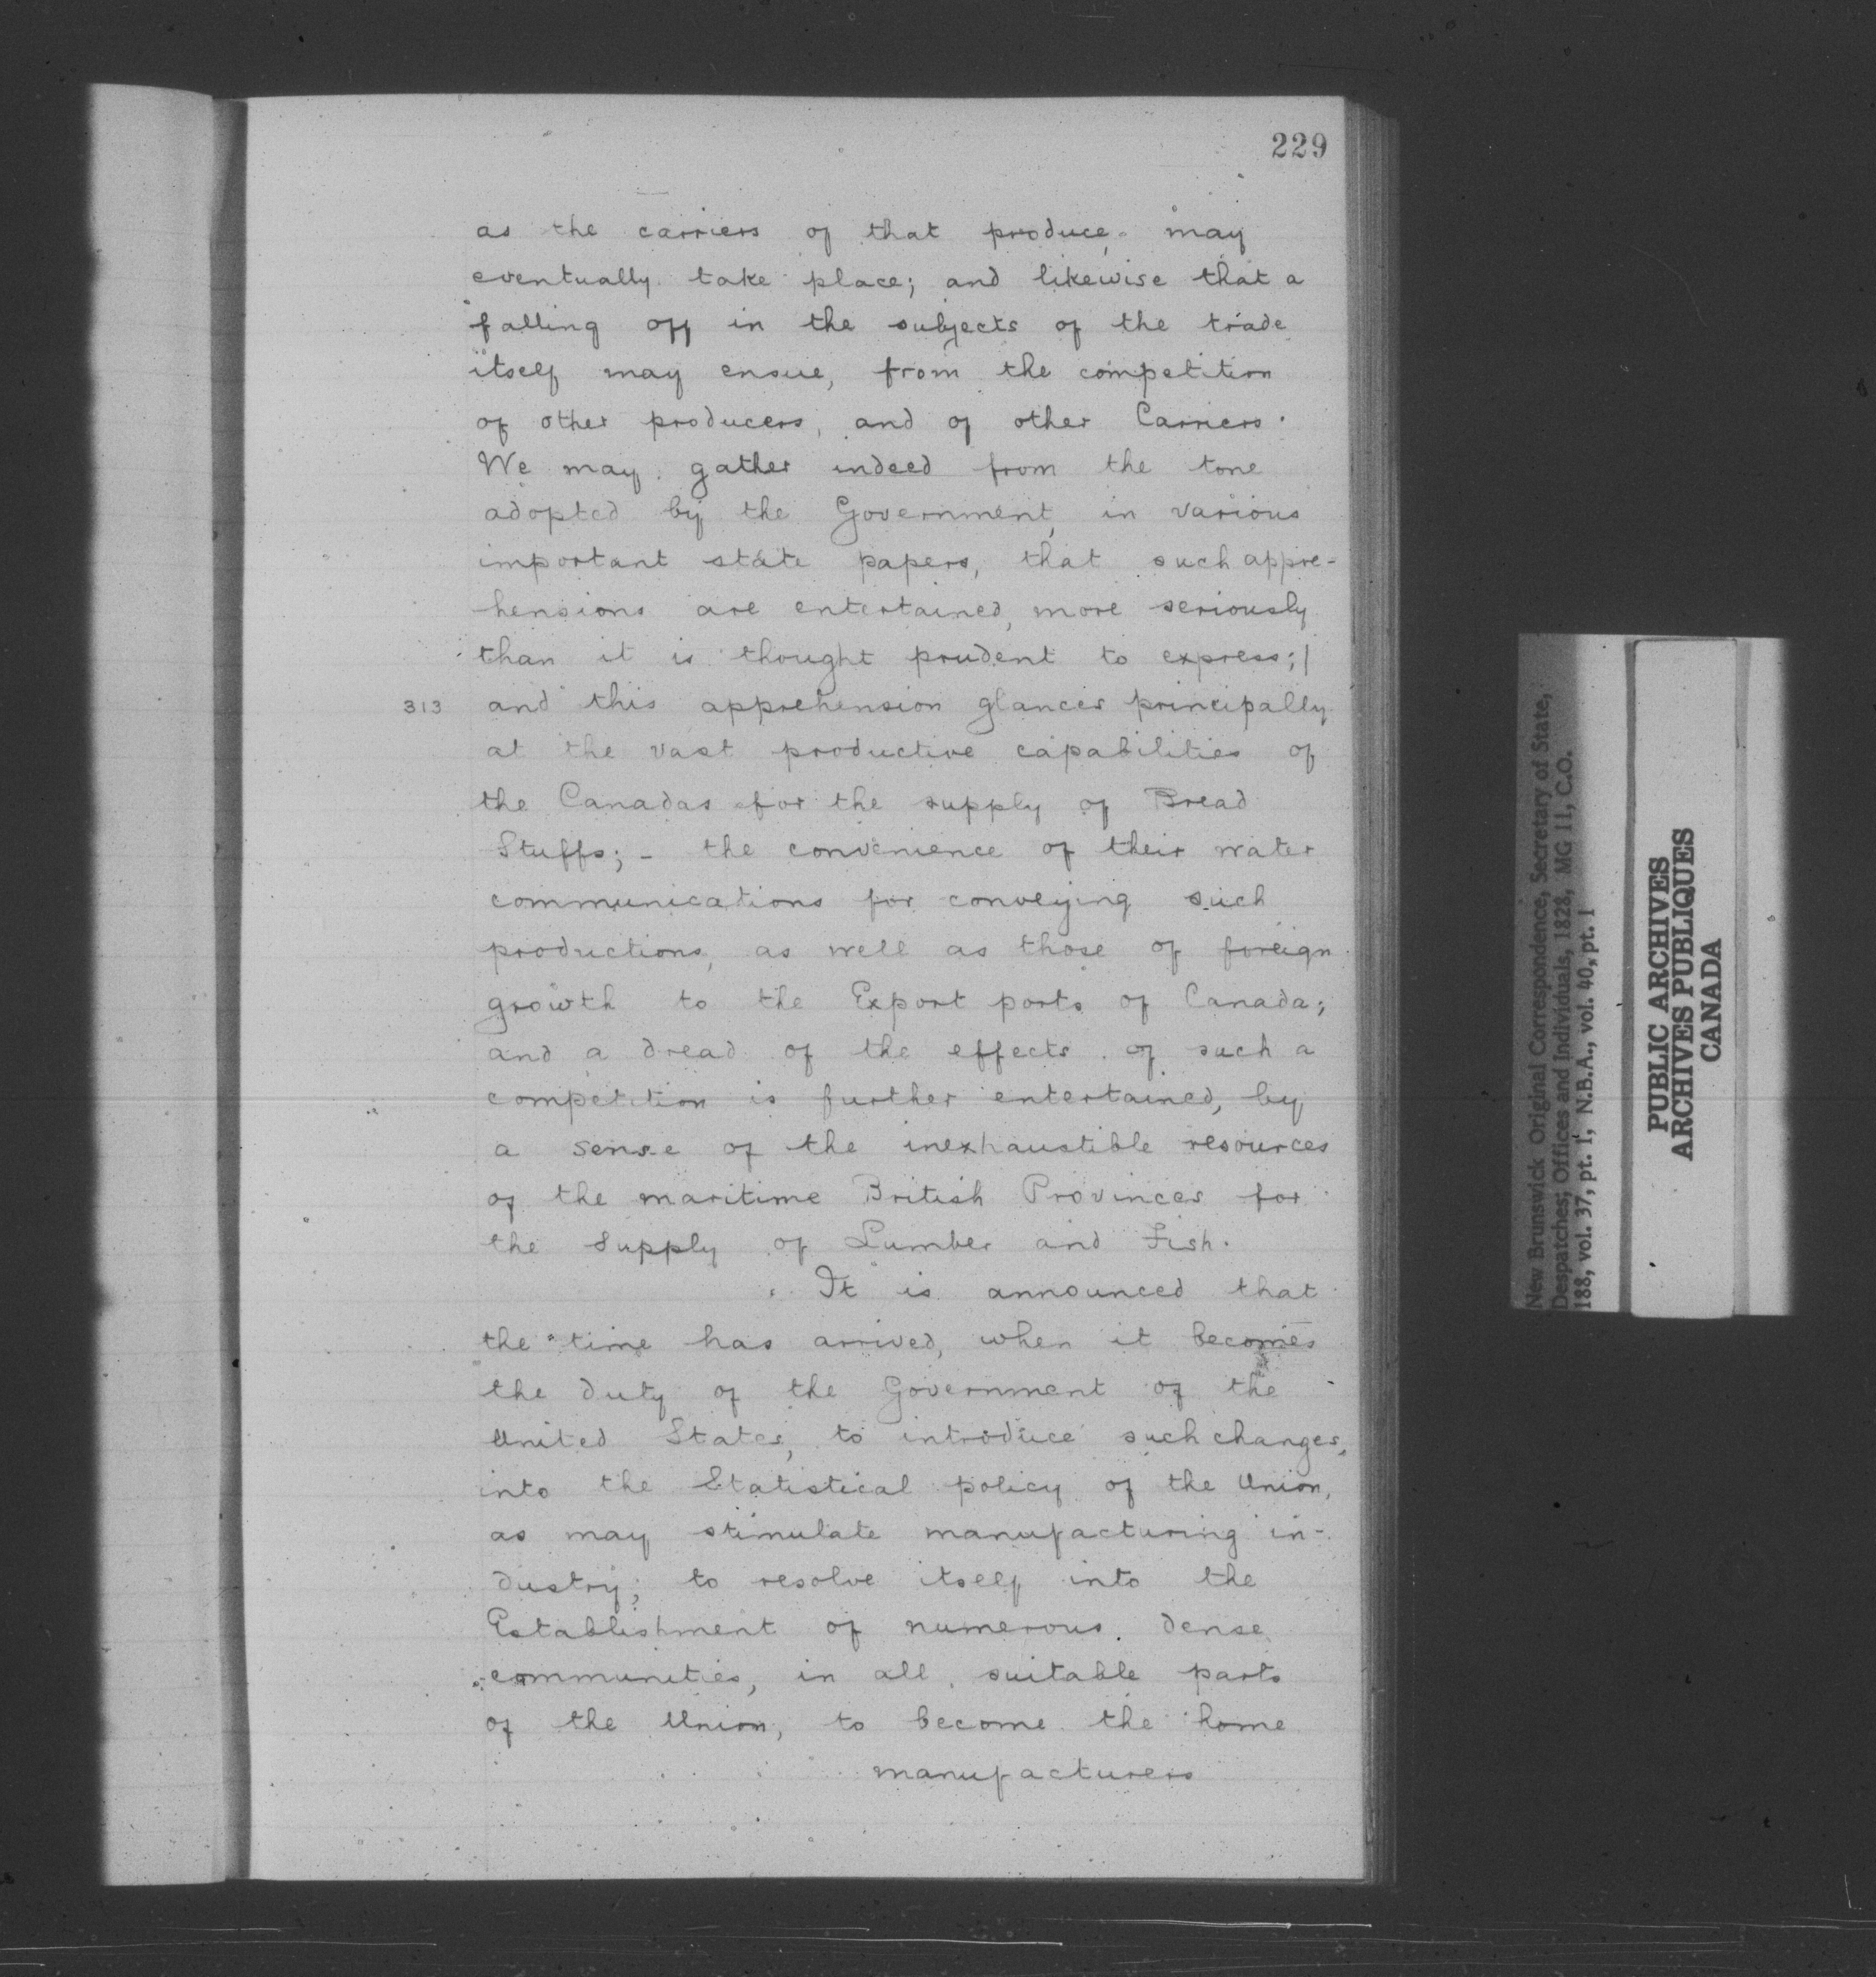 229
as the carriers of that produce, may
eventually take place; and likewise that a
falling off in the subjects of the trade
itself may ensue, from the competition
of other producers, and of other Carriers.
We may gather indeed from the tone
adopted by the Government, in various
important state papers, that such appre-
hensions are entertained, more seriously
than it is thought prudent to express; |
313 and this apprehension glances principally
at the vast productive capabilities of
the Canadas for the supply of Bread
Stuffs; - the convenience of their water
communications for conveying such
productions, as well as those of foreign
growth to the Export ports of Canada;
and a dread of the effects of such a
competition is further entertained, by
a sense of the inexhaustible resources
of the maritime British Provinces for
the supply of Lumber and Fish.
It is announced that
the time has arrived, when it becomes
the duty of the Government of the
United States, to introduce such changes,
into the Statistical policy of the Union,
as may stimulate manufacturing in-
dustry; to resolve itself into the
Establishment of numerous dense
communities, in all suitable parts
of the Union, to become the home
manufacturers
New Brunswick Original Correspondence, Secretary of State,
Despatches; Offices and Individuals, 1828, MG 11, C.O.
188, vol. 37, pt. 1, N.B.A., vol. 40, pt. 1
PUBLIC ARCHIVES
ARCHIVES PUBLIQUES
CANADA